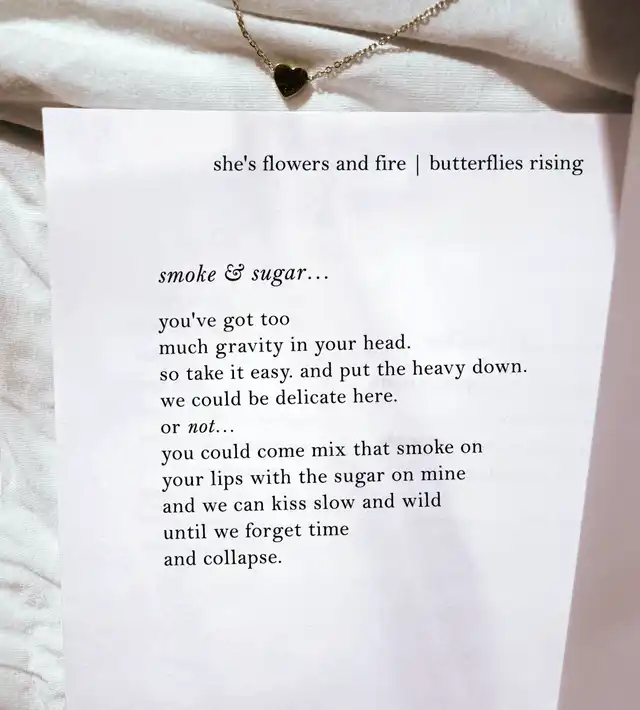 she's flowers and fire | butterflies rising
smoke & sugar...
you've got too
much gravity in your head.
so take it easy. and put the heavy down.
we could be delicate here.
or not...
you could come mix that smoke on
your lips with the sugar on mine
and we can kiss slow and wild
until we forget time
and collapse.